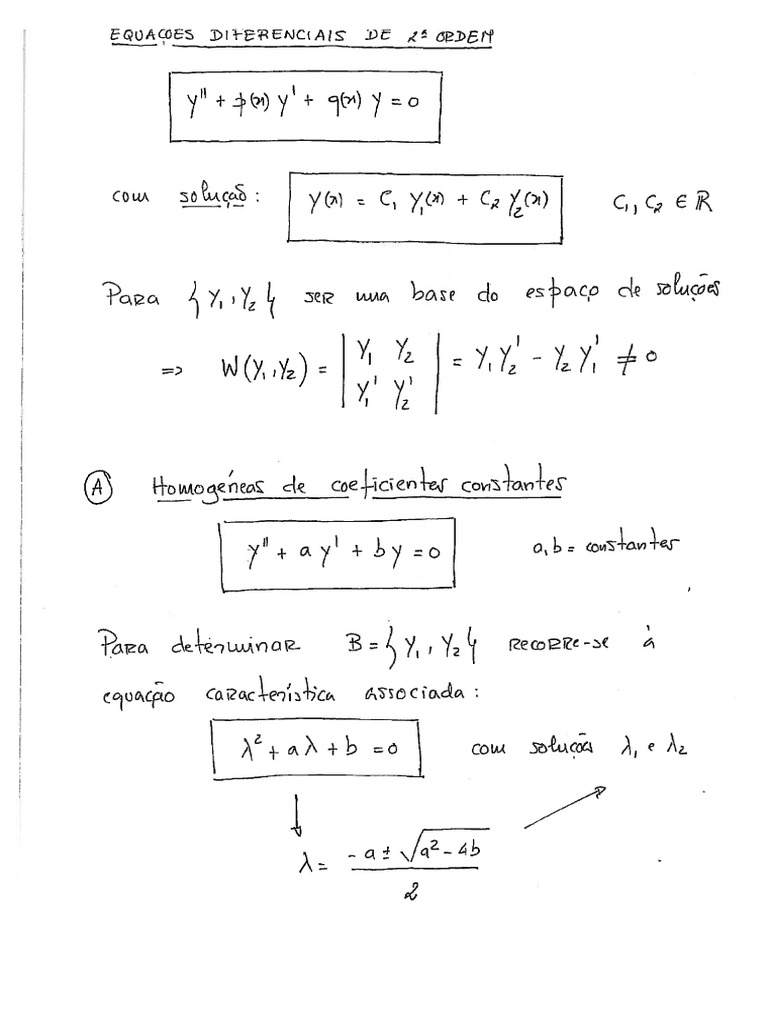 EQUAÇOES DIFERENCIAIS DE 2ª ORDEM
y'' + p(x) y' + q(x) y = 0
com solução: y(x) = C₁ y₁(x) + C₂ y₂(x) C₁, C₂ ∈ ℝ
Para {y₁, y₂} ser uma base do espaço de soluções
=> W(y₁, y₂) = | y₁ y₂ | = y₁ y₂' - y₂ y₁' ≠ 0
| y₁' y₂' |
(A) Homogéneas de coeficientes constantes
y'' + a y' + b y = 0 a, b = constantes
Para determinar B = {y₁, y₂} recorre-se à
equação característica associada:
λ² + a λ + b = 0 com solução λ₁ e λ₂
↓
λ = (-a ± √(a² - 4b)) / 2